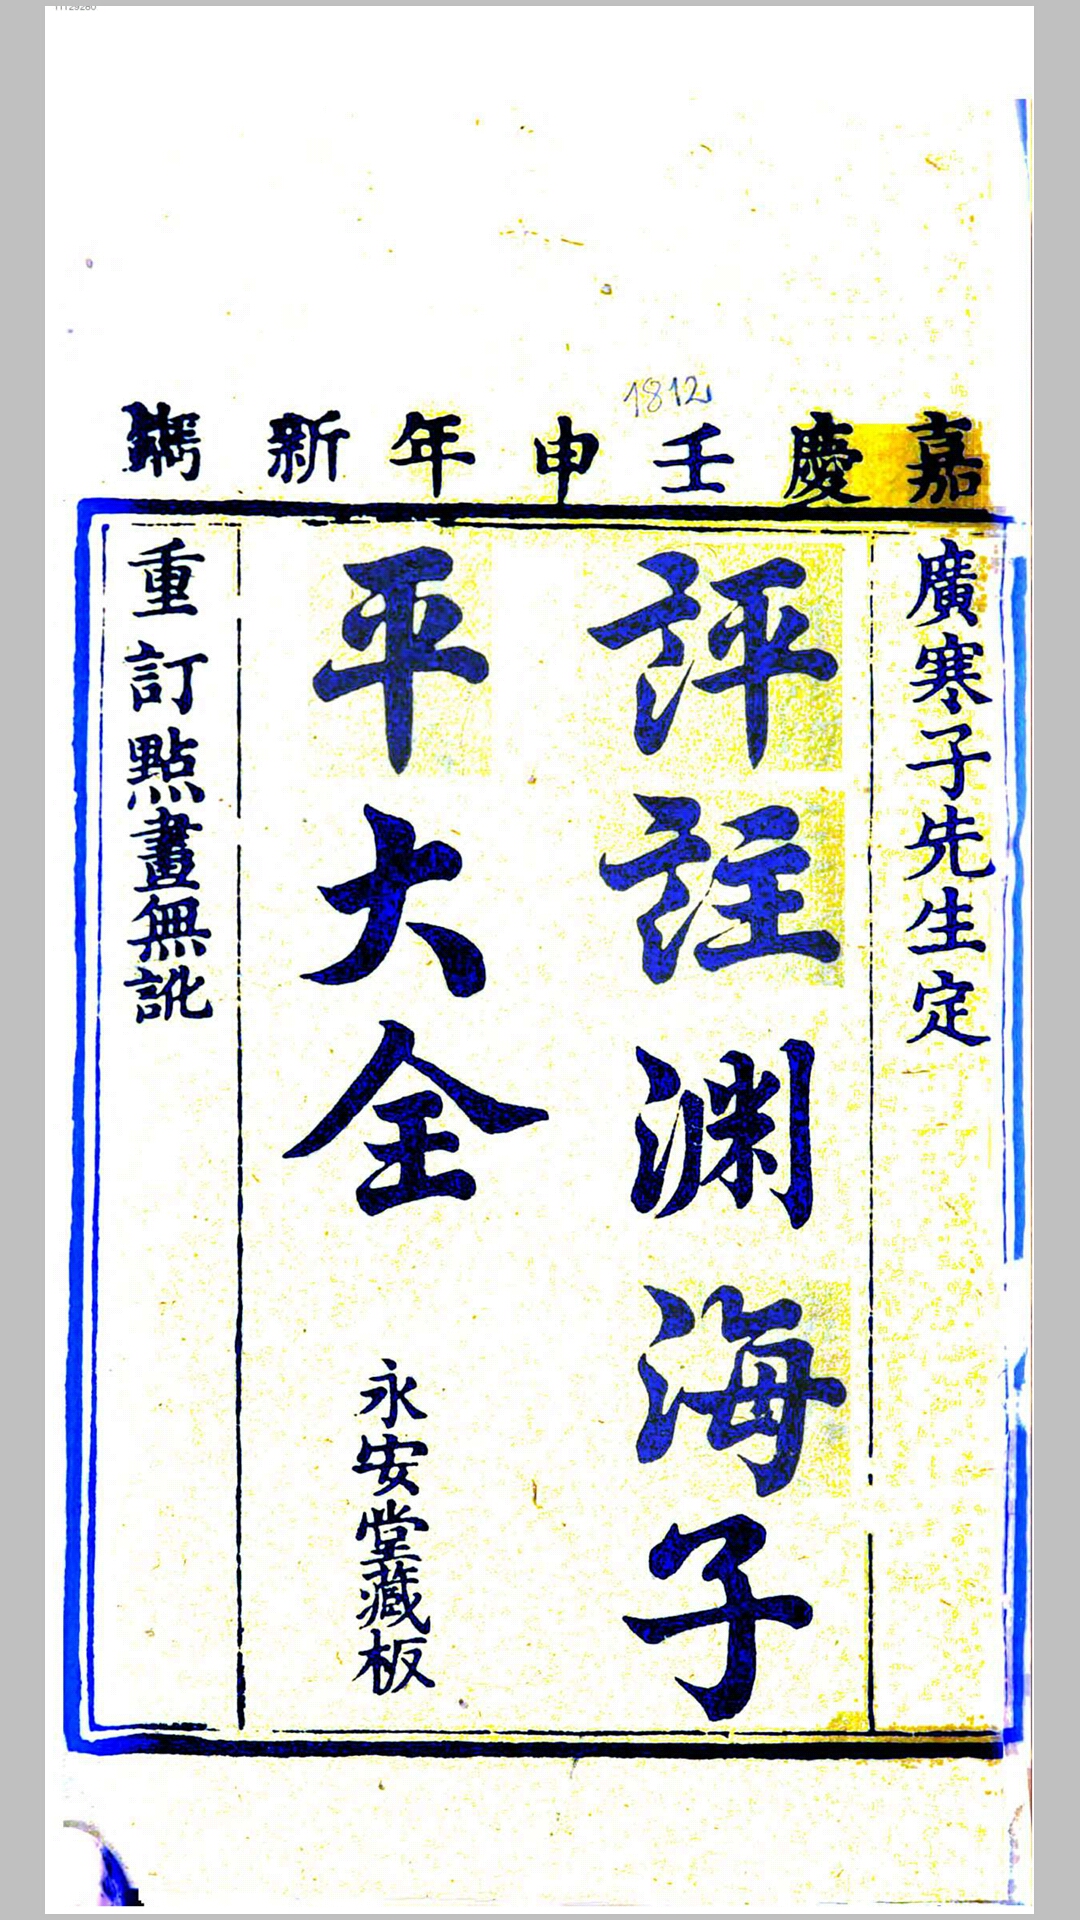 嘉慶壬申年新鐫
1812
廣寒子先生定
評註渊海子
平大全
永安堂藏板
重訂點畫無訛